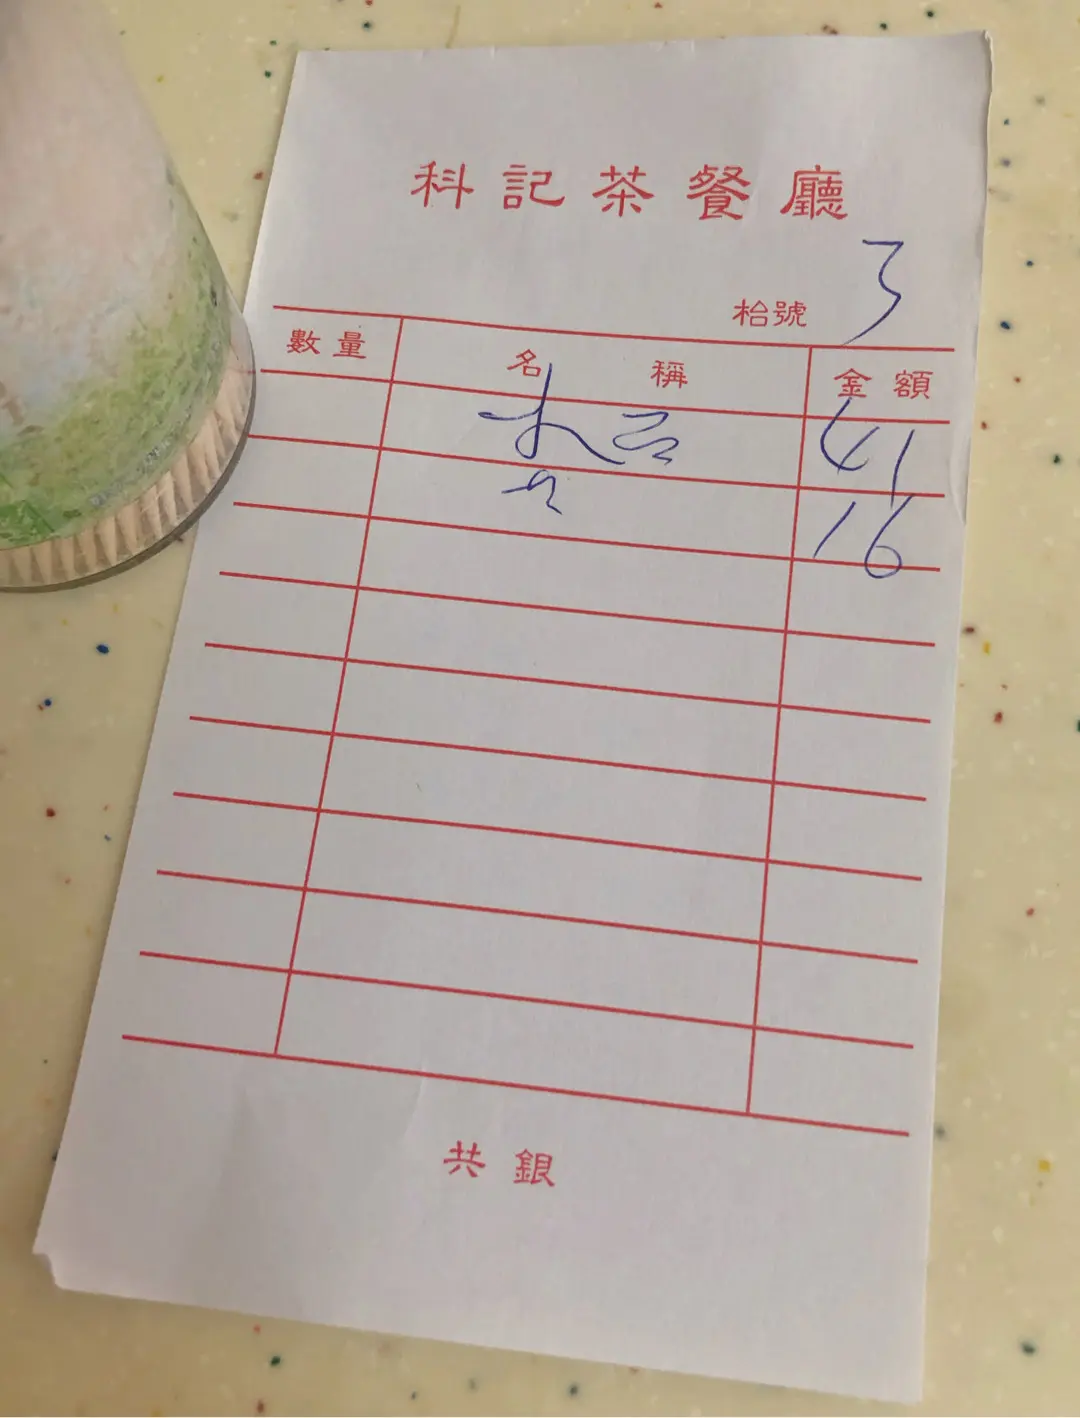 科記茶餐廳
枱號 3
數量 名稱 金額
41
16
共銀